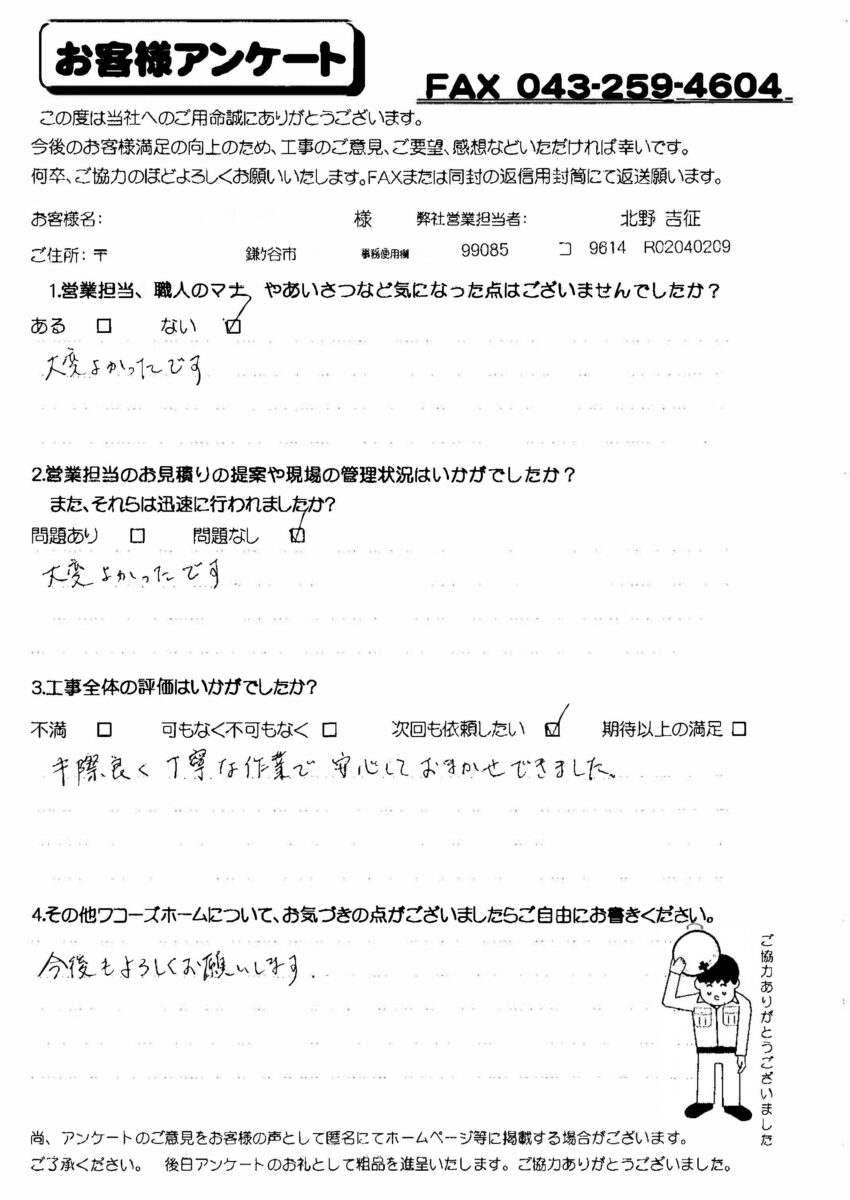 お客様アンケート
FAX 043-259-4604
この度は当社へのご用命誠にありがとうございます。
今後のお客様満足の向上のため、工事のご意見、ご要望、感想などいただければ幸いです。
何卒、ご協力のほどよろしくお願いいたします。FAXまたは同封の返信用封筒にて返送願います。
お客様名: 様 弊社営業担当者: 北野 吉征
ご住所: 〒 鎌ケ谷市 事務使用欄 99085 コ 9614 R02040209
1.営業担当、職人のマナー、やあいさつなど気になった点はございませんでしたか?
ある □ ない ☑
大変よかったです
2.営業担当のお見積りの提案や現場の管理状況はいかがでしたか?
また、それらは迅速に行われましたか?
問題あり □ 問題なし ☑
大変よかったです
3.工事全体の評価はいかがでしたか?
不満 □ 可もなく不可もなく □ 次回も依頼したい ☑ 期待以上の満足 □
手際良く丁寧な作業で安心しておまかせできました。
4.その他ワコーズホームについて、お気づきの点がございましたらご自由にお書きください。
今後もよろしくお願いします.
ご協力ありがとうございました
尚、アンケートのご意見をお客様の声として匿名にてホームページ等に掲載する場合がございます。
ご了承ください。 後日アンケートのお礼として粗品を進呈いたします。ご協力ありがとうございました。